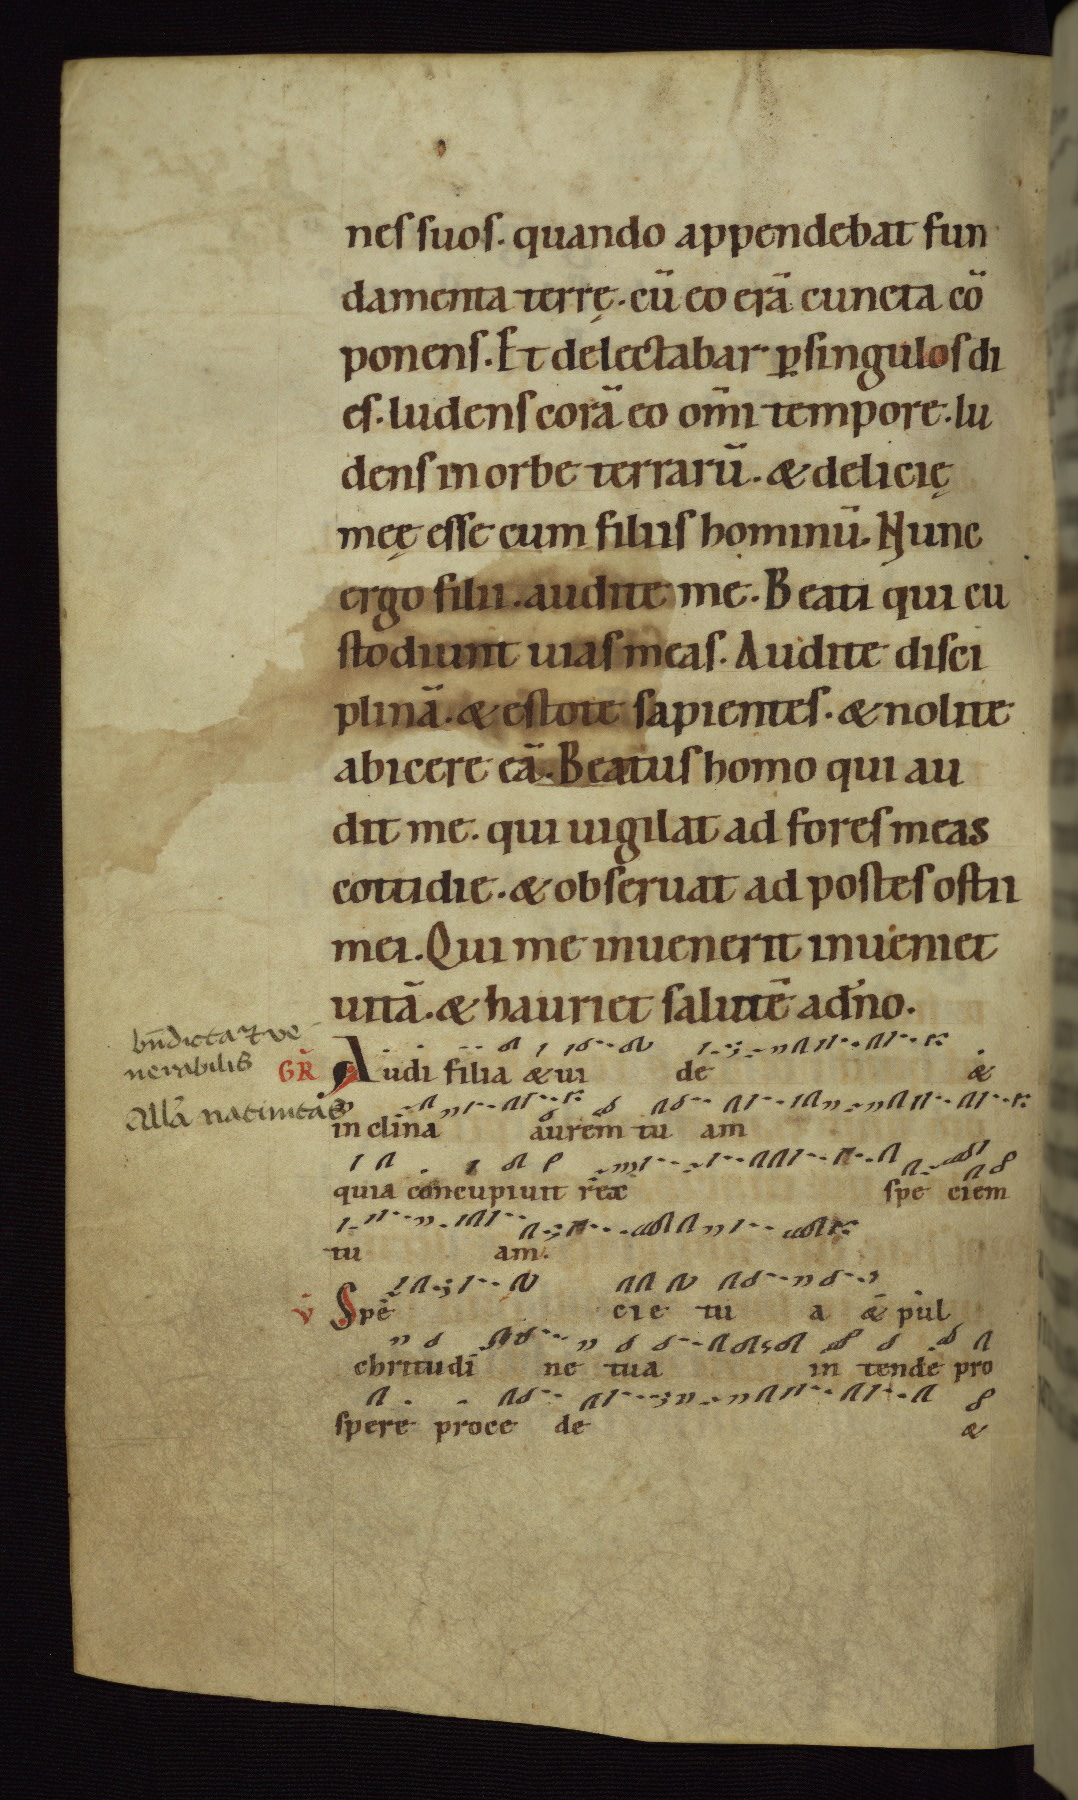 nes suos. quando appendebat fun
damenta terrę. cū eo erā cuncta cō
ponens. Et delectabar ꝑ singulos di
es. ludens corā eo om̄i tempore. lu
dens in orbe terrarū. & delicię
meę esse cum filiis hominū. Nunc
ergo filii. audite me. Beati qui cu
stodiunt uias meas. Audite disci
plinā. & estote sapientes. & nolite
abicere eā. Beatus homo qui au
dit me. qui uigilat ad fores meas
cottidie. & obseruat ad postes ostii
mei. Qui me inuenerit inueniet
uitā. & hauriet salutē a dn̄o.
bn̄dicta et ve
nerabilis
All̄a natiuitas
GR̄ Audi filia & ui de &
inclina aurem tu am
quia concupiuit rex spe ciem
tu am.
v̄ Spe cie tu a & pul
chritudi ne tua in tende pro
spere proce de &